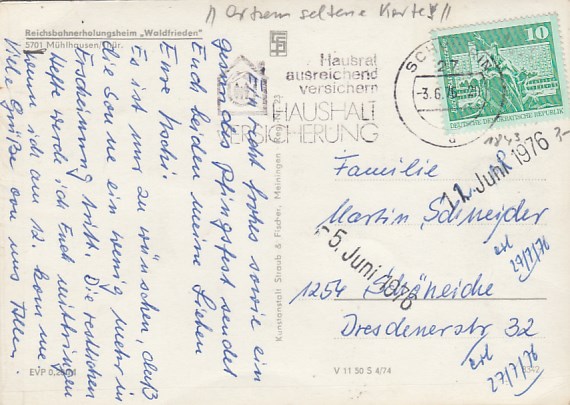 // Extrem seltene Karte! //
Reichsbahnerholungsheim „Waldfrieden"
5701 Mühlhausen/Thür.
Ein recht frohes sowie ein
gesundes Pfingstfest sendet
Euch beiden meine Lieben
Eure Uschi.
Es ist nur zu wünschen, daß
die Sonne ein wenig mehr in
Erscheinung tritt. Die restlichen
Hefte werde ich Euch mitbringen
wenn ich am 12. komme.
Viele Grüße von uns Allen.
EVP 0,20
Hausrat
ausreichend
versichern
HAUSHALT
VERSICHERUNG
-3.6.76
10
DEUTSCHE DEMOKRATISCHE REPUBLIK
1843
12. Juni 1976
-5. Juni 1976
Kunstanstalt Straub & Fischer, Meiningen
Familie
Martin Schneider
1254 Schöneiche
Dresdenerstr. 32
erl
27/7/76
erl
27/7/76
V 11 50 S 4/74